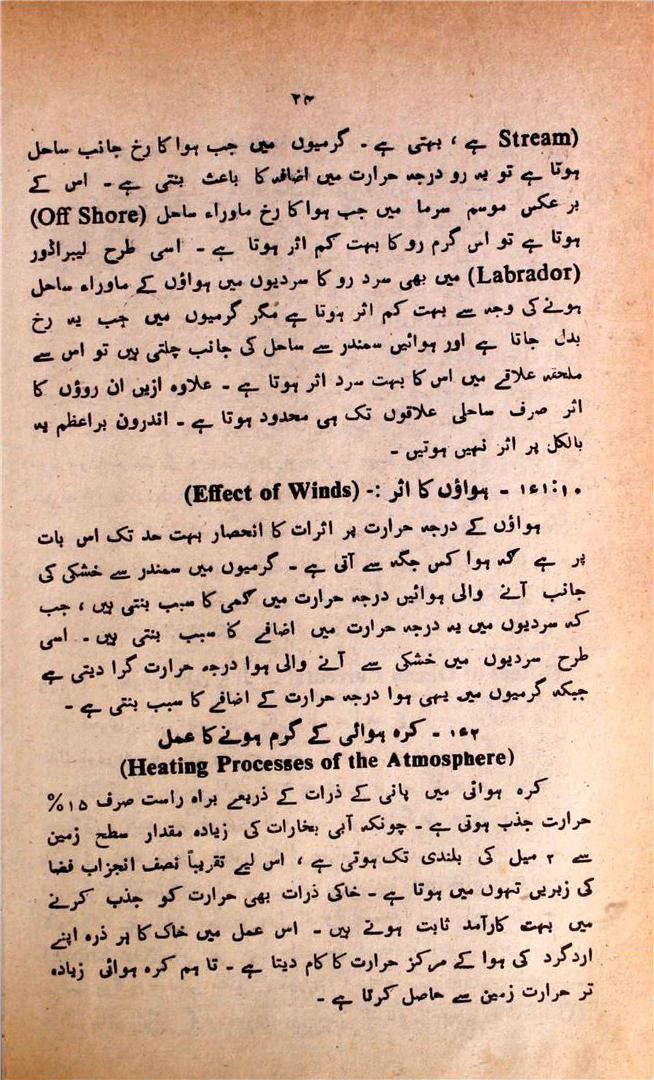 ۲۴
(Stream ہے ، بہتی ہے ۔ گرمیوں میں جب ہوا کا رخ جانب ساحل
ہوتا ہے تو یہ رو درجہ حرارت میں اضافہ کا باعث بنتی ہے ۔ اس کے
برعکس موسم سرما میں جب ہوا کا رخ ماوراء ساحل (Off Shore)
ہوتا ہے تو اس گرم رو کا بہت کم اثر ہوتا ہے ۔ اسی طرح لیبراڈور
(Labrador) میں بھی سرد رو کا سردیوں میں ہواؤں کے ماوراء ساحل
ہونے کی وجہ سے بہت کم اثر ہوتا ہے مگر گرمیوں میں جب یہ رخ
بدل جاتا ہے اور ہوائیں سمندر سے ساحل کی جانب چلتی ہیں تو اس سے
ملحقہ علاقے میں اس کا بہت سرد اثر ہوتا ہے ۔ علاوہ ازیں ان روؤں کا
اثر صرف ساحلی علاقوں تک ہی محدود ہوتا ہے ۔ اندرون براعظم یہ
بالکل پر اثر نہیں ہوتیں ۔
۱ء۱:۱۰ ۔ ہواؤں کا اثر :- (Effect of Winds)
ہواؤں کے درجہ حرارت پر اثرات کا انحصار بہت حد تک اس بات
پر ہے کہ ہوا کس جگہ سے آتی ہے ۔ گرمیوں میں سمندر سے خشکی کی
جانب آنے والی ہوائیں درجہ حرارت میں کمی کا سبب بنتی ہیں ، جب
کہ سردیوں میں یہ درجہ حرارت میں اضافے کا سبب بنتی ہیں ۔ اسی
طرح سردیوں میں خشکی سے آنے والی ہوا درجہ حرارت گرا دیتی ہے
جبکہ گرمیوں میں یہی ہوا درجہ حرارت کے اضافے کا سبب بنتی ہے ۔
۱ء۲ ۔ کرہ ہوائی کے گرم ہونے کا عمل
(Heating Processes of the Atmosphere)
کرہ ہوائی میں پانی کے ذرات کے ذریعے براہ راست صرف ۱۵%
حرارت جذب ہوتی ہے ۔ چونکہ آبی بخارات کی زیادہ مقدار سطح زمین
سے ۲ میل کی بلندی تک ہوتی ہے ، اس لیے تقریباً نصف انجزاب فضا
کی زیریں تہوں میں ہوتا ہے ۔ خاکی ذرات بھی حرارت کو جذب کرنے
میں بہت کارآمد ثابت ہوتے ہیں ۔ اس عمل میں خاک کا ہر ذرہ اپنے
اردگرد کی ہوا کے مرکز حرارت کا کام دیتا ہے ۔ تا ہم کرہ ہوائی زیادہ
تر حرارت زمین سے حاصل کرتا ہے ۔